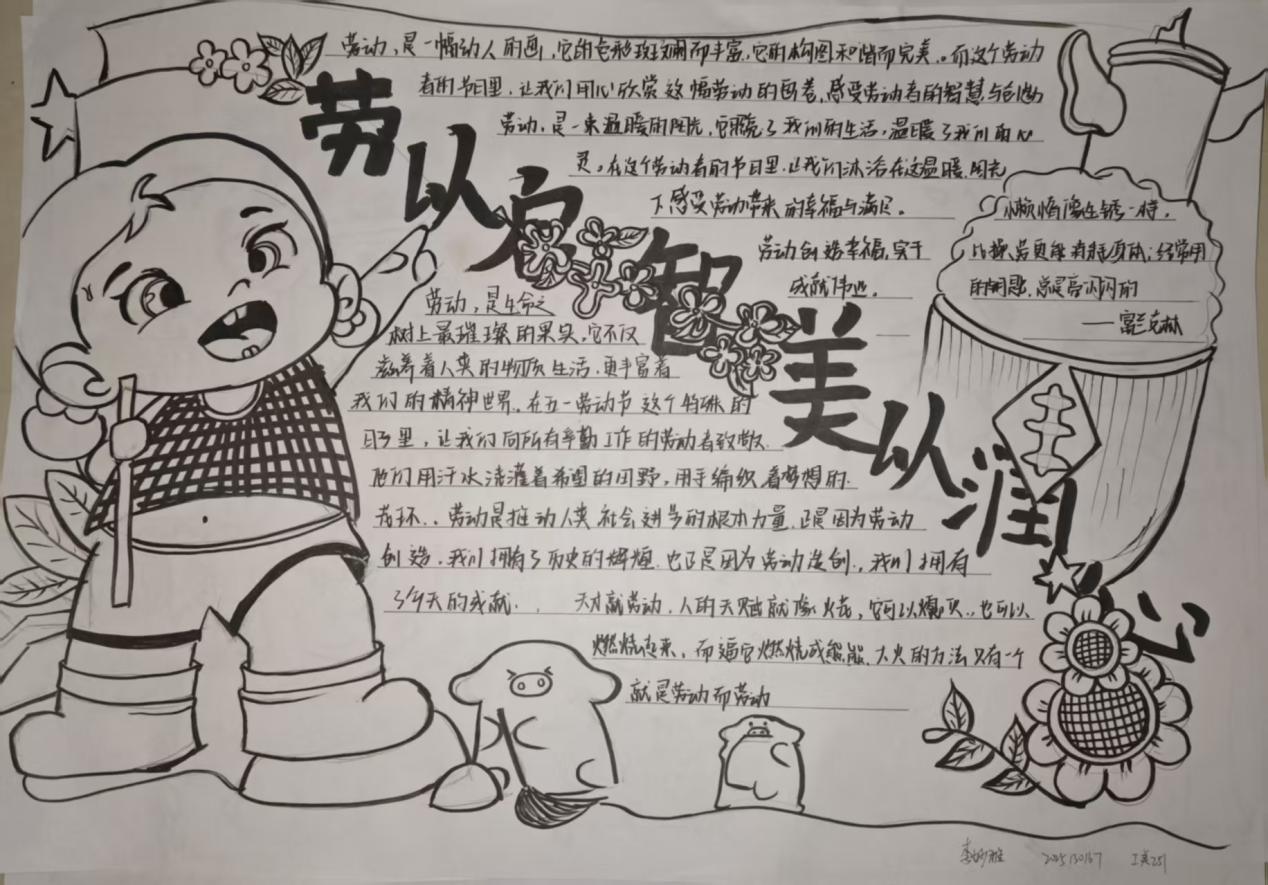 劳动，是一幅动人的画，它的色彩斑斓而丰富，它的构图和谐而完美。而这个劳动
者的节日里，让我们用心欣赏这幅劳动的画卷，感受劳动者的智慧与创造
劳动，是一束温暖的阳光，它照亮了我们的生活，温暖了我们的心
灵。在这个劳动者的节日里，让我们沐浴在这温暖阳光
下感受劳动带来的幸福与满足。
劳动创造幸福，实干
成就伟业。
劳以启智美以润心
劳动，是生命之
树上最璀璨的果实，它不仅
滋养着人类的物质生活，更丰富着
我们的精神世界。在五一劳动节这个特殊的
日子里，让我们向所有辛勤工作的劳动者致敬
他们用汗水浇灌着希望的田野，用手编织着梦想的
花环。劳动是推动人类社会进步的根本力量，正是因为劳动
创造，我们拥有了历史的辉煌，也正是因为劳动造创，我们拥有
了今天的成就。天才就劳动，人的天赋就像火花，它可以熄灭，也可以
燃烧起来，而逼它燃烧成熊熊大火的方法只有一个
就是劳动而劳动
懒惰像生锈一样，
比操劳更能消耗身体；经常用
的钥匙，总是亮闪闪的
——富兰克林